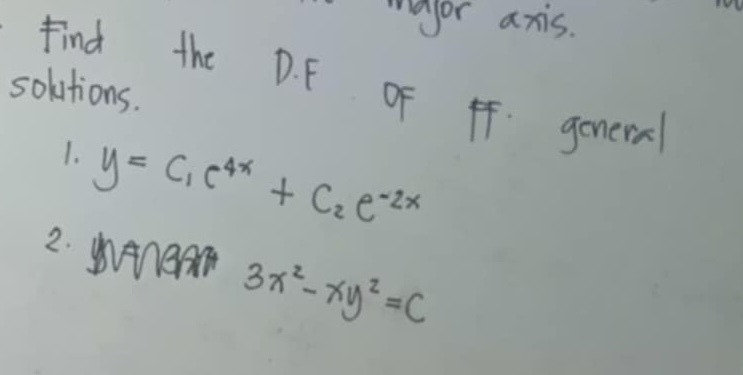 major axis.
Find the D.F OF ff. general
solutions.
1. y = C₁ e⁴ˣ + C₂ e⁻²ˣ
2. 3x² - xy² = C